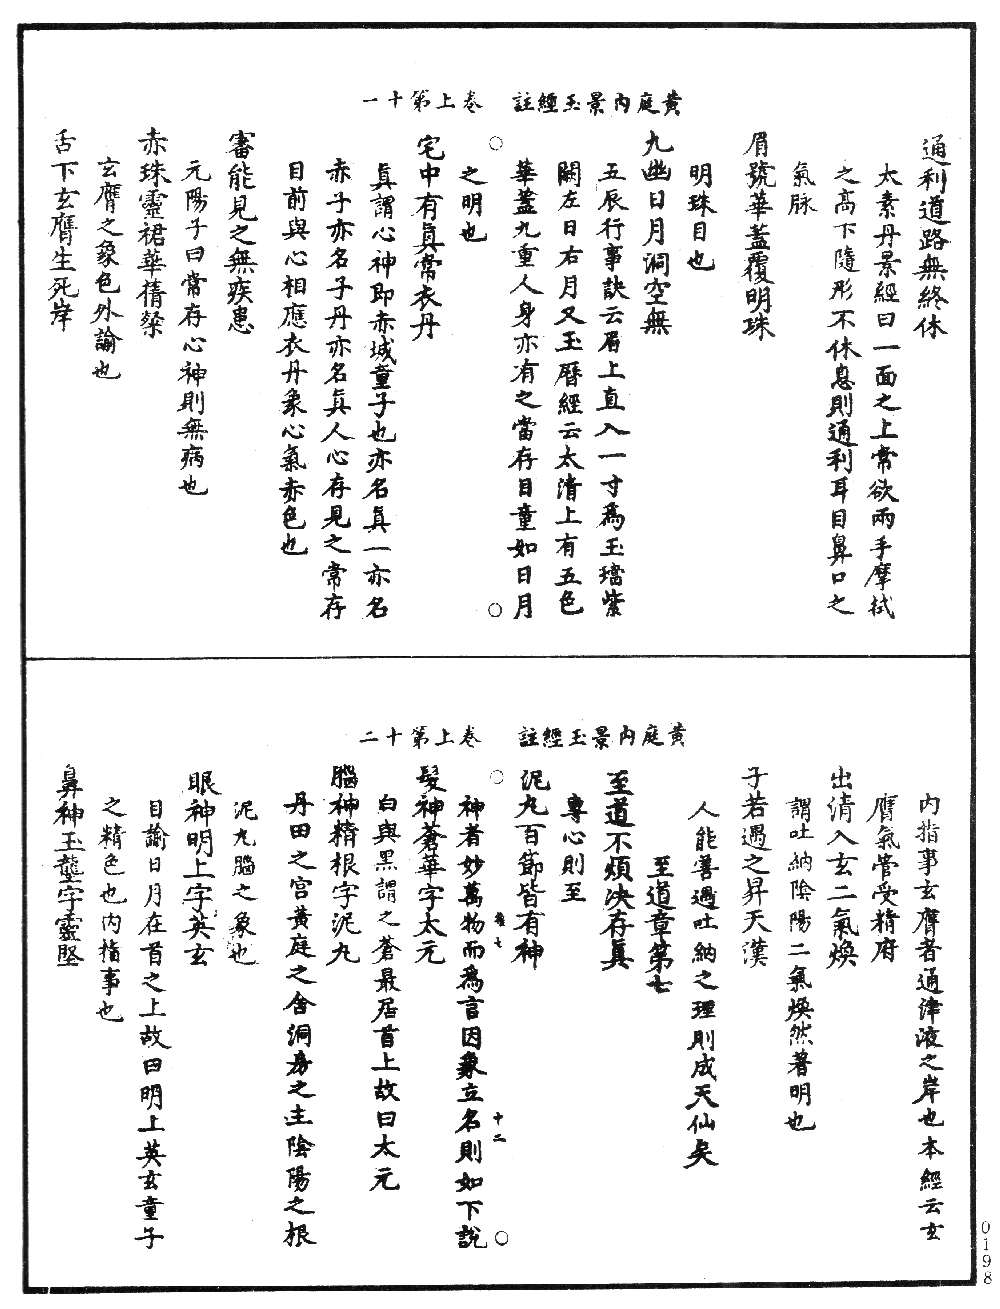 黃庭內景玉經註　卷上第十一
通利道路無終休
太素丹景經曰一面之上常欲兩手摩拭
之高下隨形不休息則通利耳目鼻口之
氣脉
眉號華蓋覆明珠
明珠目也
九幽日月洞空無
五辰行事訣云眉上直入一寸爲玉璫紫
闕左日右月又玉曆經云太清上有五色
華蓋九重人身亦有之當存目童如日月
之明也
宅中有眞常衣丹
眞謂心神即赤城童子也亦名眞一亦名
赤子亦名子丹亦名眞人心存見之常存
目前與心相應衣丹象心氣赤色也
審能見之無疾患
元陽子曰常存心神則無病也
赤珠靈裙華蒨粲
玄膺之象色外諭也
舌下玄膺生死岸
黃庭內景玉經註　卷上第十二
內指事玄膺者通津液之岸也本經云玄
膺氣管受精府
出清入玄二氣煥
謂吐納陰陽二氣煥然著明也
子若遇之昇天漢
人能善遇吐納之理則成天仙矣
至道章第七
至道不煩決存眞
專心則至
泥丸百節皆有神
卷七
十二
神者妙萬物而爲言因象立名則如下說
髮神蒼華字太元
白與黑謂之蒼最居首上故曰太元
腦神精根字泥丸
丹田之宮黃庭之舍洞房之主陰陽之根
泥丸腦之象也
眼神明上字英玄
目諭日月在首之上故曰明上英玄童子
之精色也內指事也
鼻神玉壟字靈堅
0198